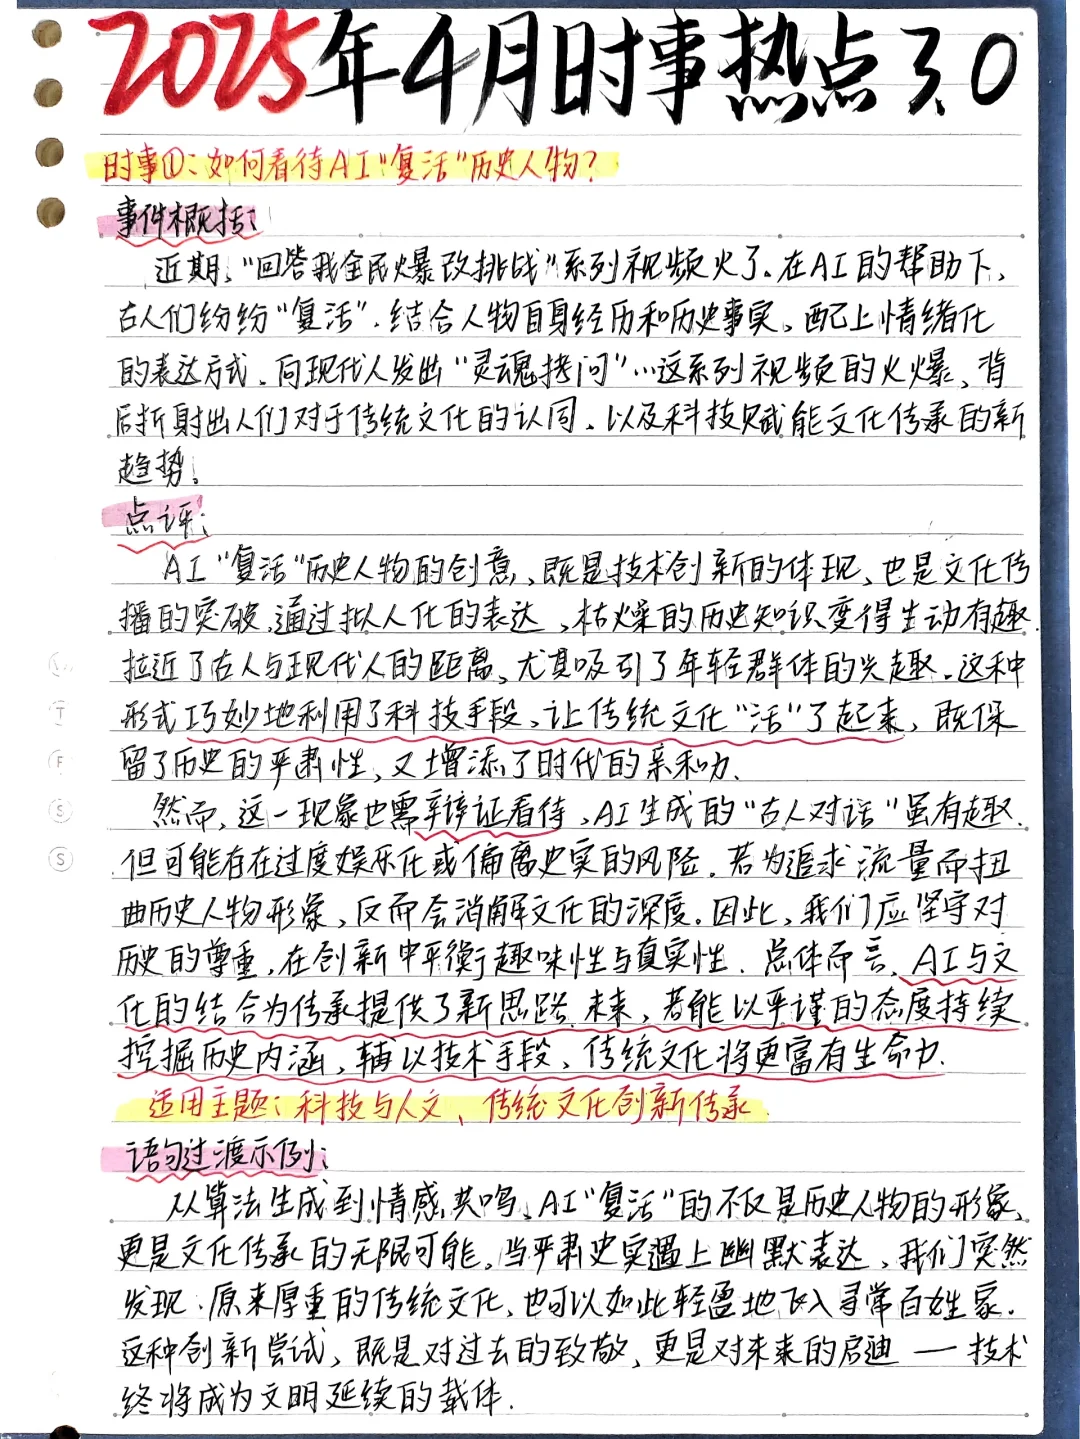 2025年4月时事热点3.0
时事①:如何看待AI“复活”历史人物?
事件概括:
近期,“回答我全民爆改挑战”系列视频火了.在AI的帮助下,
古人们纷纷“复活”.结合人物自身经历和历史事实、配上情绪化
的表达方式、向现代人发出“灵魂拷问”…这系列视频的火爆,背
后折射出人们对于传统文化的认同、以及科技赋能文化传承的新
趋势.
点评:
AI“复活”历史人物的创意,既是技术创新的体现、也是文化传
播的突破.通过拟人化的表达,枯燥的历史知识变得生动有趣.
拉近了古人与现代人的距离,尤其吸引了年轻群体的兴趣.这种
形式巧妙地利用了科技手段、让传统文化“活”了起来,既保
留了历史的严肃性,又增添了时代的亲和力.
然而,这一现象也需辩证看待、AI生成的“古人对话”虽有趣.
但可能存在过度娱乐化或偏离史实的风险.若为追求流量而扭
曲历史人物形象,反而会消解文化的深度.因此,我们应坚守对
历史的尊重,在创新中平衡趣味性与真实性.总体而言,AI与文
化的结合为传承提供了新思路.未来,若能以严谨的态度持续
挖掘历史内涵,辅以技术手段、传统文化将更富有生命力.
适用主题:科技与人文、传统文化创新传承
语句过渡示例:
从算法生成到情感共鸣,AI“复活”的不仅是历史人物的形象,
更是文化传承的无限可能.当严肃史实遇上幽默表达,我们突然
发现、原来厚重的传统文化,也可以如此轻盈地飞入寻常百姓家.
这种创新尝试,既是对过去的致敬,更是对未来的启迪—技术
终将成为文明延续的载体.
T
F
S
S